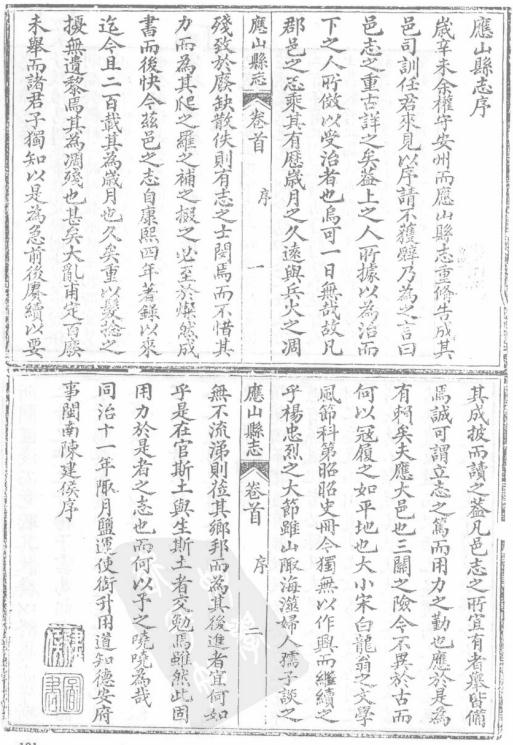 應山縣志序
歲辛未余權守安州而應山縣志重修告成其
邑司訓任君來見以序請不獲辭乃為之言曰
邑志之重古詳之矣蓋上之人所據以為治而
下之人所倣以受治者也烏可一日無哉故凡
郡邑之志乘其有歷歲月之久遠與兵火之凋
應山縣志 卷首 序 一
殘致於廢缺散佚則有志之士閔焉而不惜其
力而為其爬之羅之補之掇之必至於燦然成
書而後快今茲邑之志自康熙四年著錄以來
迄今且二百載其為歲月也久矣重以髮捻之
擾無遺黎焉其為凋殘也甚矣大亂甫定百廢
未舉而諸君子獨知以是為急前後賡續以要
其成披而讀之蓋凡邑志之所宜有者舉皆備
焉誠可謂立志之篤而用力之勤也應於是為
有賴矣夫應大邑也三關之險今不異於古而
何以冦履之如平地也大小宋白龍翁之文學
風節科第昭昭史冊今獨無以作興而繼續之
乎楊忠烈之大節雖山陬海澨婦人孺子談之
應山縣志 卷首 序 二
無不流涕則莅其鄉邦而為其後進者宜何如
乎是在官斯土與生斯土者交勉焉雖然此固
用力於是者之志也而何以予之曉曉為哉
同治十一年陬月鹽運使銜升用道知德安府
事閩南陳建侯序